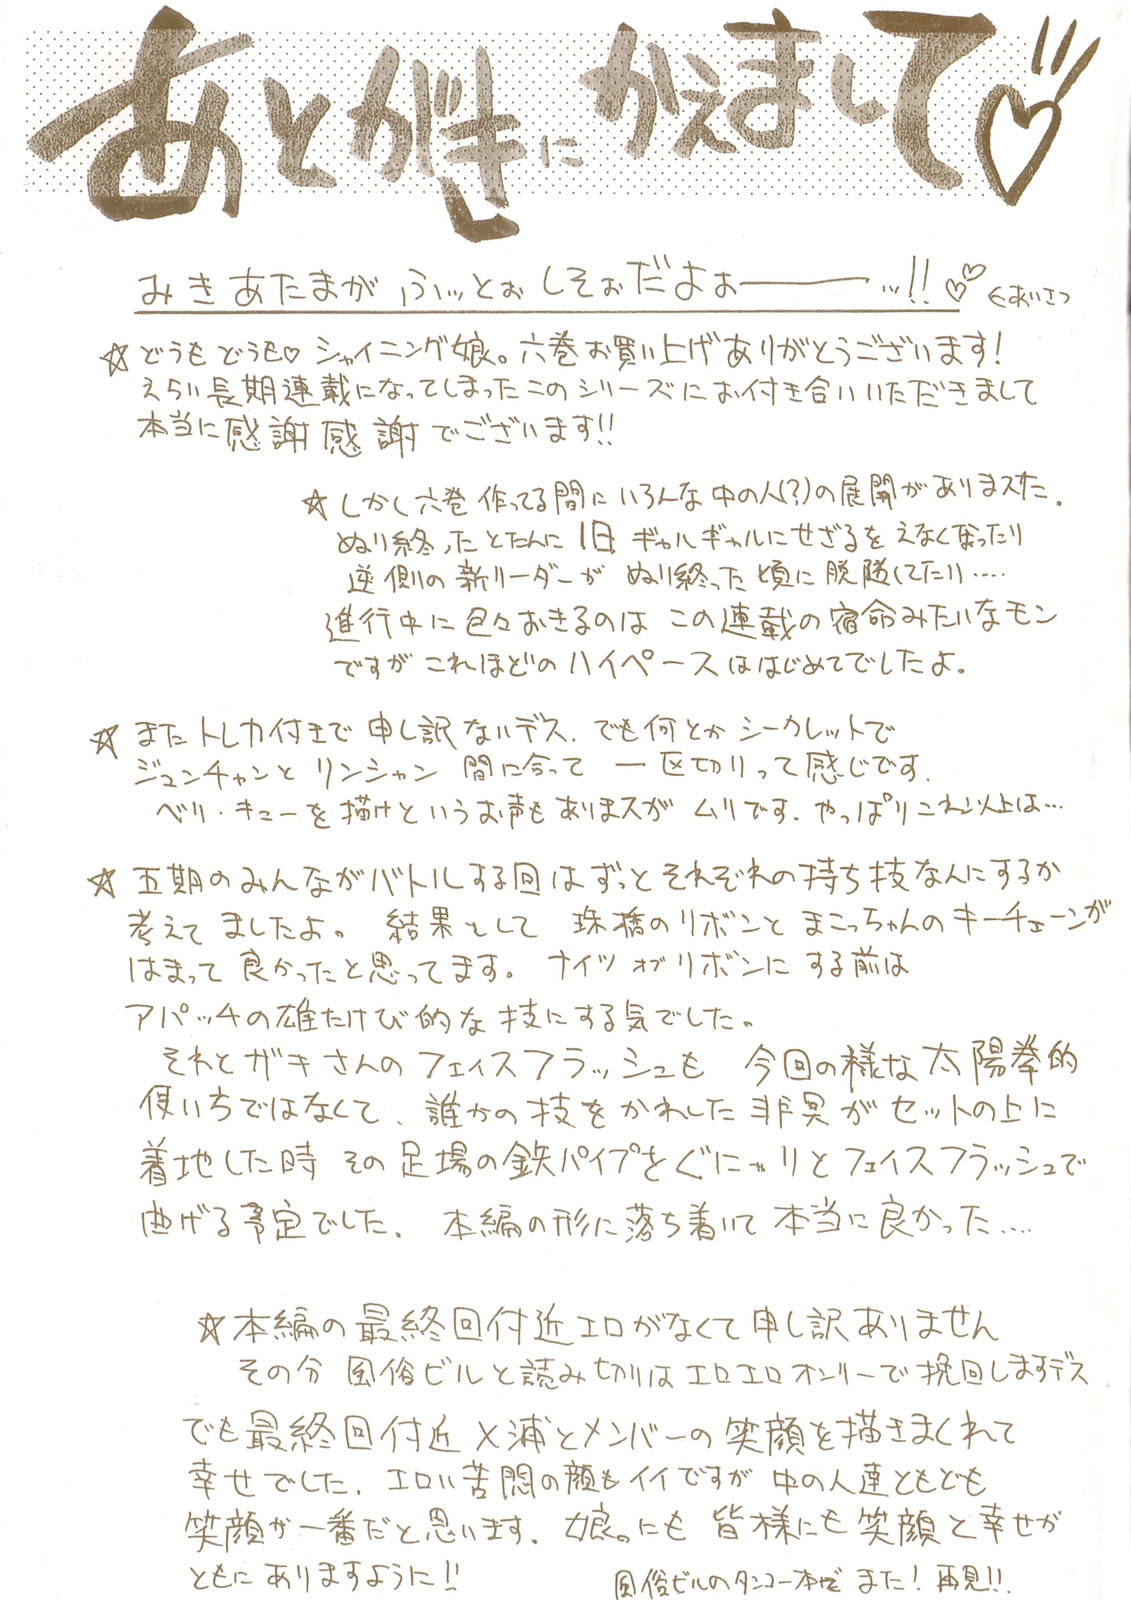 あとがきにかえまして♡
みきあたまがふぃっとぉしそぉだよぉ―――…!!♡♡ ←あいさつ
☆どうもどうも♡シャイニング娘。六巻お買い上げありがとうございます!
えらい長期連載になってしまったこのシリーズにお付き合いいただきまして
本当に感謝感謝でございます!!
☆しかし六巻作ってる間にいろんな中の人(?)の展開がありまスた.
ぬり終ったとたんに1日ギャルギャルにせざるをえなくなったり
逆側の新リーダーがぬり終った頃に脱隊してたり…..
進行中に色々おきるのはこの連載の宿命みたいなモン
ですがこれほどのハイペースははじめてでしたよ。
☆またトレカ付きで申し訳ないデス. でも何とかシークレットで
ジュンチャンとリンシャン間に合って一区切りって感じです.
ベリ・キューを描けというお声もありまスがムリです. やっぱりこれ以上は…
☆五期のみんながバトルする回はずっとそれぞれの持ち技なんにするか
考えてましたよ。結果として珠橋のリボンとまこっちゃんのキーチェーンが
はまって良かったと思ってます。ナイツオブリボンにする前は
アパッチの雄たけび的な技にする気でした。
それとガキさんのフェイスフラッシュも今回の様な太陽拳的
使いちではなくて、誰かの技をかわした非実がセットの上に
着地した時その足場の鉄パイプをぐにゃりとフェイスフラッシュで
曲げる予定でした. 本編の形に落ち着いて本当に良かった….
☆本編の最終回付近エロがなくて申し訳ありません
その分風俗ビルと読み切りはエロエロオンリーで挽回しますデス
でも最終回付近メ浦とメンバーの笑顔を描きまくれて
幸せでした. エロい苦悶の顔もイイですが中の人達ともども
笑顔が一番だと思います. 娘。にも皆様にも笑顔と幸せが
ともにありますように!!
風俗ビルのタンコー本でまた! 再見!!.